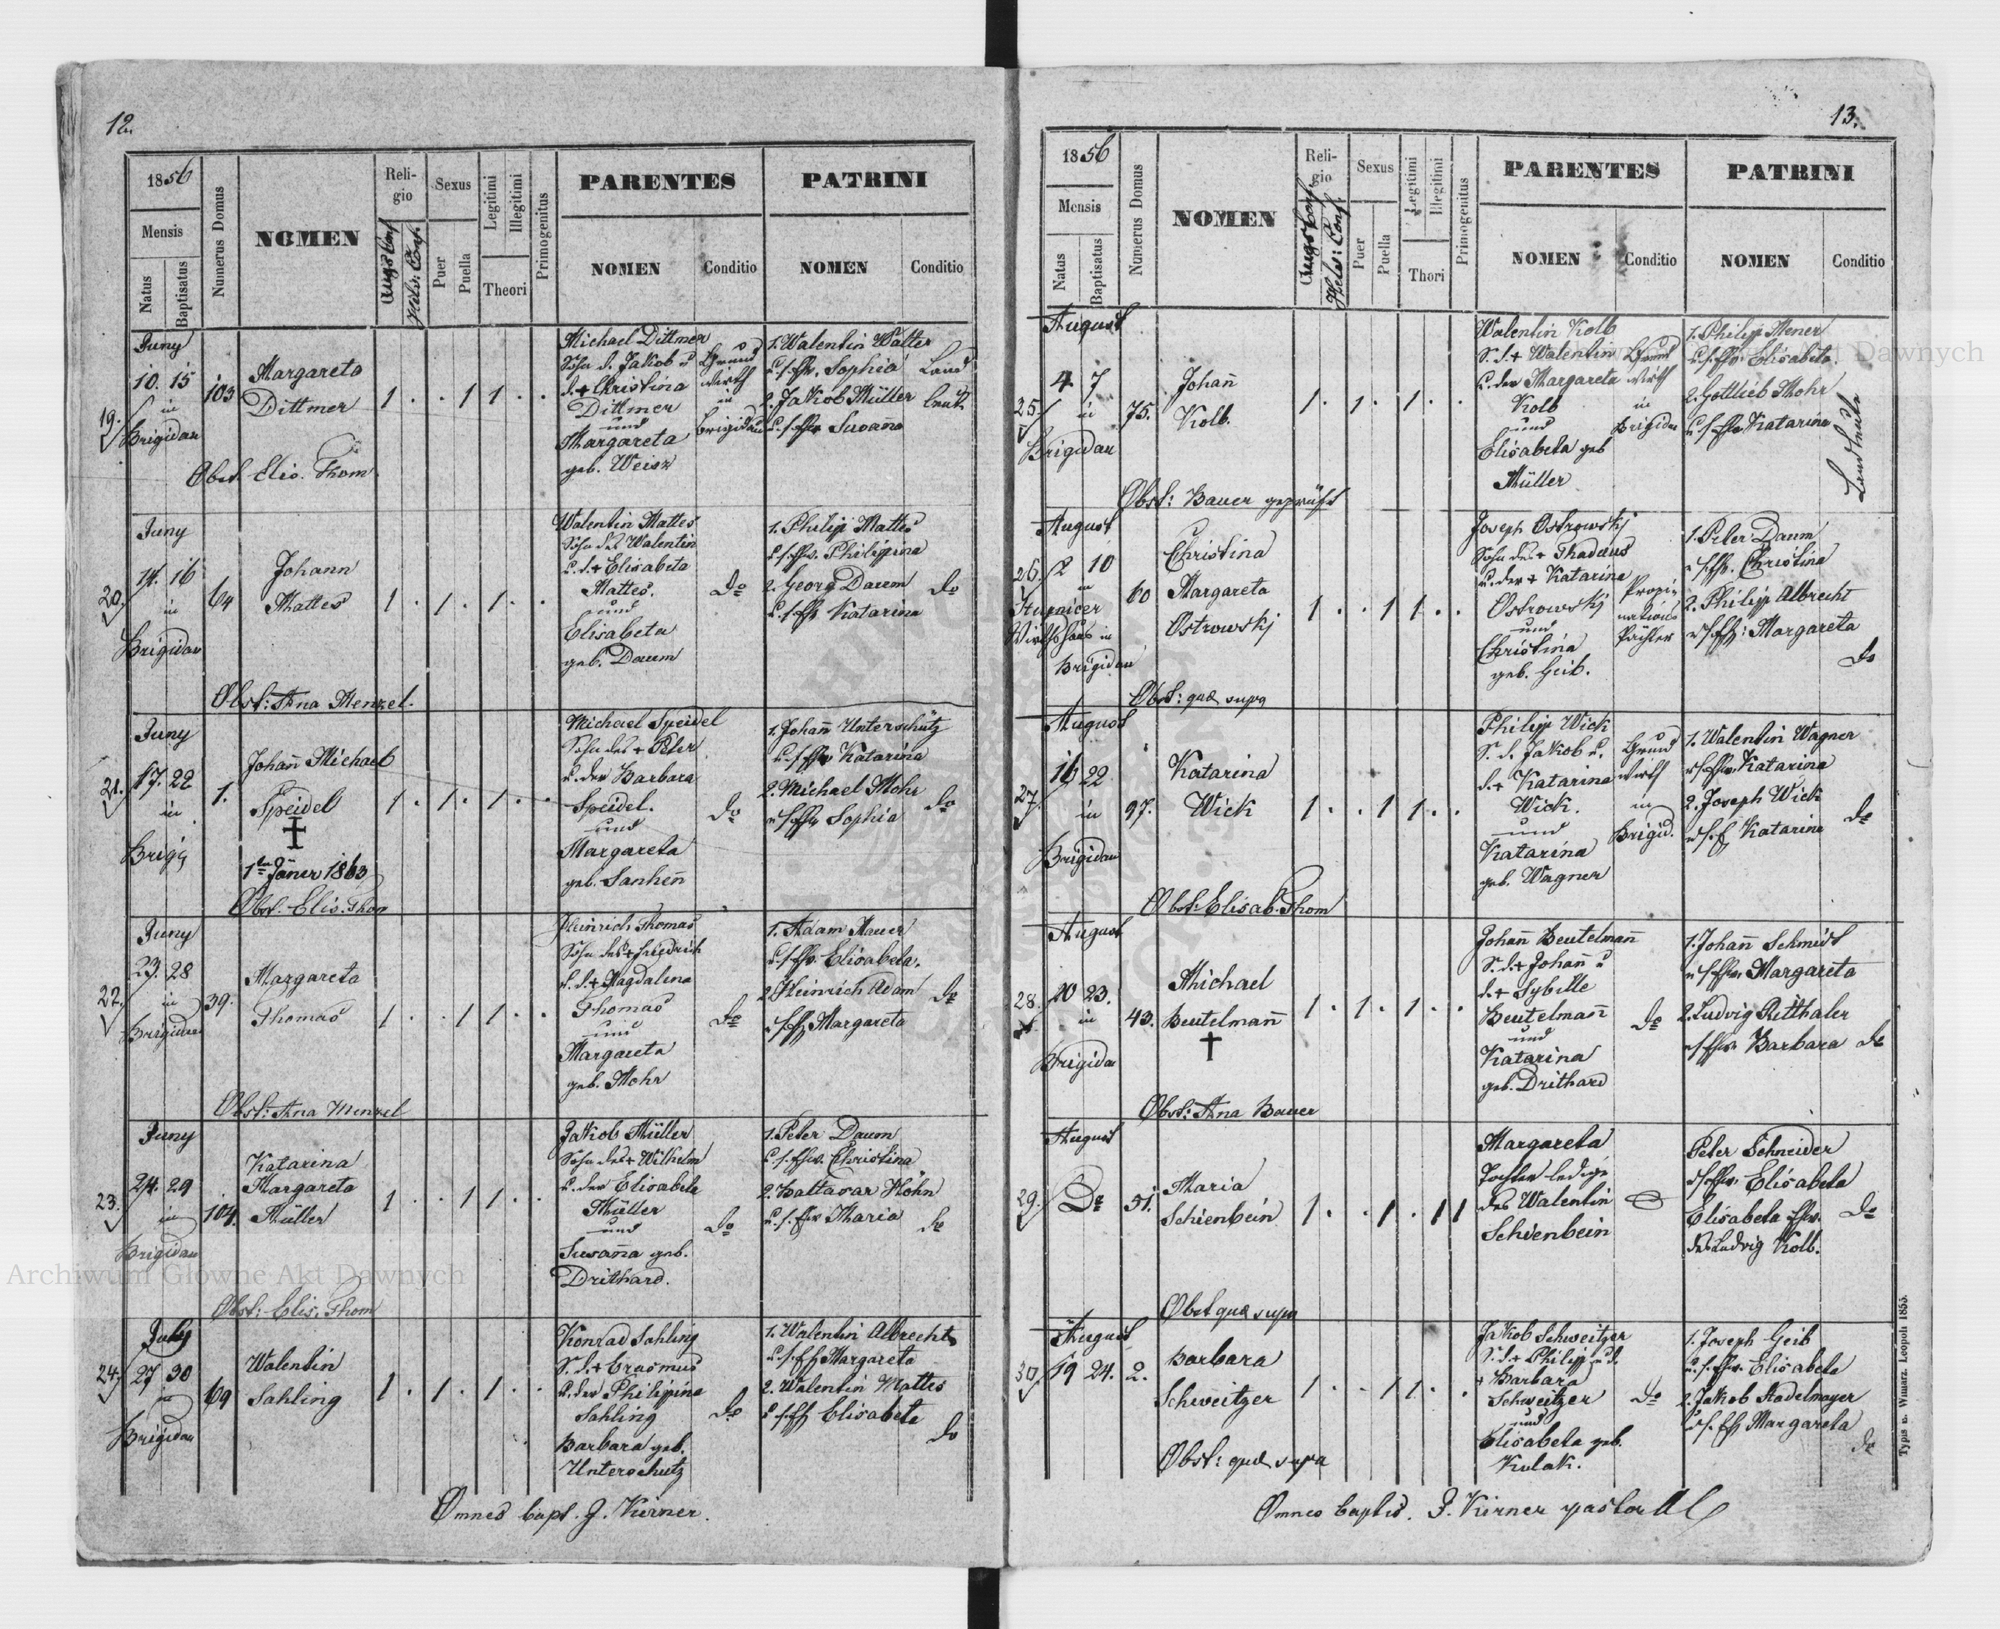 12.
1856
Mensis
Natus
Baptisatus
Numerus Domus
NOMEN
Religio
Augsb. Conf.
Helv: Conf.
Sexus
Puer
Puella
Legitimi
Illegitimi
Theori
Primogenitus
PARENTES
NOMEN
Conditio
PATRINI
NOMEN
Conditio
19.
Juny
10. 15
in
Brigidau
103
Margareta
Dittmer
1 . . 1 1 . .
Michael Dittmer
Sohn d. Jakob u
d. + Christina
Dittmer
und
Margareta
geb. Weisz
Grund
wirth
in
Brigidau
1. Walentin Walter
u. s. Ehw. Sophia
2. Jakob Müller
u. s. Ehw Susana
Land
leute
Obst. Elis. Thom
20.
Juny
14. 16
in
Brigidau
64
Johann
Mattes
1 . 1 . 1 . .
Walentin Mattes
Sohn des Walentin
u. d. + Elisabeta
Mattes.
und
Elisabeta
geb. Daum
do
1. Philipp Mattes
u. s. Ehw. Philippina
2. Georg Daum
u. s. Ehw Katarina
do
Obst: Ana Menzel.
21.
Juny
17. 22
in
Brigi
1.
Johan Michael
Speidel
†
1ten Jäner 1863
1 . 1 . 1 . .
Michael Speidel
Sohn des + Peter
u. der Barbara
Speidel.
und
Margareta
geb. Sanhen
do
1. Johan Unterschütz
u. s. Ehw Katarina
2. Michael Mohr
u s Ehw Sophia
do
Obst. Elis. Thom
22.
Juny
23. 28
in
Brigidau
39.
Margareta
Thomas
1 . . 1 1 . .
Heinrich Thomas
Sohn des + Friedrich
u. d. + Magdalena
Thomas
und
Margareta
geb. Mohr
do
1. Adam Mauer
u. s. Ehw. Elisabeta.
2. Heinrich Adam
u s Ehw Margareta
do
Obst: Ana Menzel
23.
Juny
24. 29
in
Brigidau
104.
Katarina
Margareta
Müller
1 . . 1 1 . .
Jakob Müller
Sohn des + Wilhelm
u. der Elisabeta
Müller
und
Susana geb.
Drithard.
do
1. Peter Daum
u. s. Ehw. Christina
2. Baltasar Höhn
u. s. Ehw Maria
do
Obst: Elis. Thom
24.
July
27 30
in
Brigidau
69
Walentin
Sahling
1 . 1 . 1 . .
Konrad Sahling
S. d. + Erasmus
u. der Philippina
Sahling
Barbara geb.
Unterschutz
do
1. Walentin Albrecht
u. s. Ehw Margareta
2. Walentin Mattes
u. s. Ehw Elisabeta
do
Omnes bapt. J. Kirner.
13.
1856
Mensis
Natus
Baptisatus
Numerus Domus
NOMEN
Religio
Augsb. Conf.
Helv: Conf.
Sexus
Puer
Puella
Legitimi
Illegitimi
Thori
Primogenitus
PARENTES
NOMEN
Conditio
PATRINI
NOMEN
Conditio
25.
August
4. 7
in
Brigidau
75.
Johan
Kolb.
1 . 1 . 1 . .
Walentin Kolb
S. d. + Walentin
u. der Margareta
Kolb
und
Elisabeta geb
Müller
Grund
wirth
in
Brigidau
1. Philipp Mener
u. s. Ehw. Elisabeta
2. Gottlieb Mohr
u. s. Ehw Katarina
Landleute
Obst: Bauer geprüft
26.
August
2 10
in
Wirthshaus in
Brigidau
60
Christina
Margareta
Ostrowskj
1 . . 1 1 . .
Joseph Ostrowskj
Sohn des + Thadeus
u. der + Katarina
Ostrowskj
und
Christina
geb. Geib.
Propi-
nations
Pächter
1. Peter Daum
u s. Ehw. Christina
2. Philipp Albrecht
u s Ehw: Margareta
do
Obst: quæ supra
27
August
16 22
in
Brigidau
97.
Katarina
Wick
1 . . 1 1 . .
Philipp Wick
S. d. Jakob u.
d. + Katarina
Wick.
und
Katarina
geb. Wagner
Grund
wirth
in
Brigid.
1. Walentin Wagner
u s Ehw. Katarina
2. Joseph Wick
u s. E Katarina
do
Obst: Elisab. Thom
28.
August
20 23.
in
Brigidau
43.
Michael
Beutelman
†
1 . 1 . 1 . .
Johan Beutelman
S. d. + Johan u
d. + Sybille
Beutelman
und
Katarina
geb. Drithard
do
1. Johan Schmidt
u s Ehw. Margareta
2. Ludwig Retthaler
u s Ehw. Barbara
do
Obst: Ana Bauer
29.
August
do
51.
Maria
Schienbein
1 . . 1 . 1 1
Margareta
Tochter ledige
des Walentin
Schienbein
Peter Schneider
u s Ehw. Elisabeta
Elisabeta Ehw.
des Ludwig Kolb.
do
Obst quæ supra
30
August
19 24.
2.
Barbara
Schweitzer
1 . . 1 1 . .
Jakob Schweitzer
S. d. + Philipp u d.
+ Barbara
Schweitzer
und
Elisabeta geb.
Kulak.
do
1. Joseph Geib
u. s. Ehw. Elisabeta
2. Jakob Stadelmayer
u. s. Eh Margareta
do
Obst: quæ supra
Omnes baptis. J. Kirner pastor AC
Typis E. Winiarz Leopoli 1855.
Archiwum Główne Akt Dawnych
Archiwum Główne Akt Dawnych